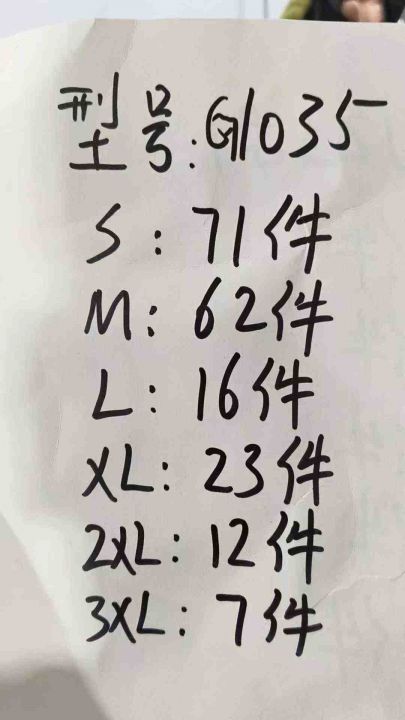 型号:G1035
S:71件
M:62件
L:16件
XL:23件
2XL:12件
3XL:7件